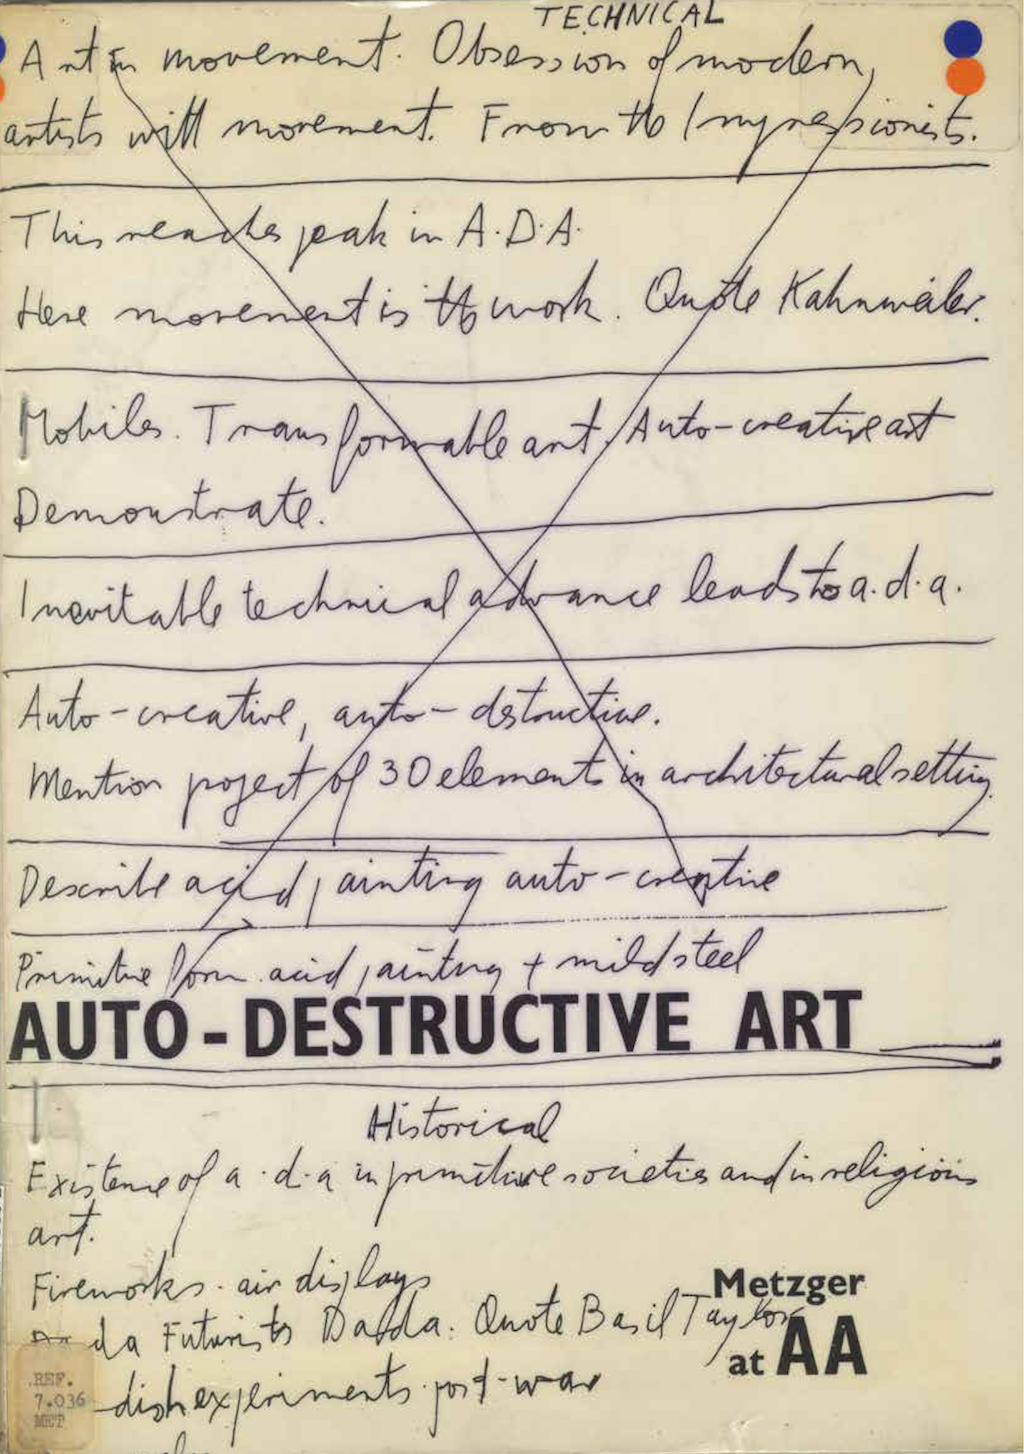 TECHNICAL
Art in movement. Obsession of modern
artists with movement. From the Impressionists.
This reaches peak in A.D.A.
Here movement is the work. Quote Kahnweiler.
Mobiles. Transformable art. Auto-creative art
Demonstrate.
Inevitable technical advance leads to a.d.a.
Auto-creative, auto-destructive.
Mention project of 30 elements in architectural setting.
Describe acid painting auto-creative
Primitive form acid painting + mild steel
AUTO-DESTRUCTIVE ART
Historical
Existence of a.d.a in primitive societies and in religious
art.
Fireworks. air displays
da Futurists Dada. Quote Basil Taylor
dish experiments post-war
Metzger
at AA
REF.
7.036
MET